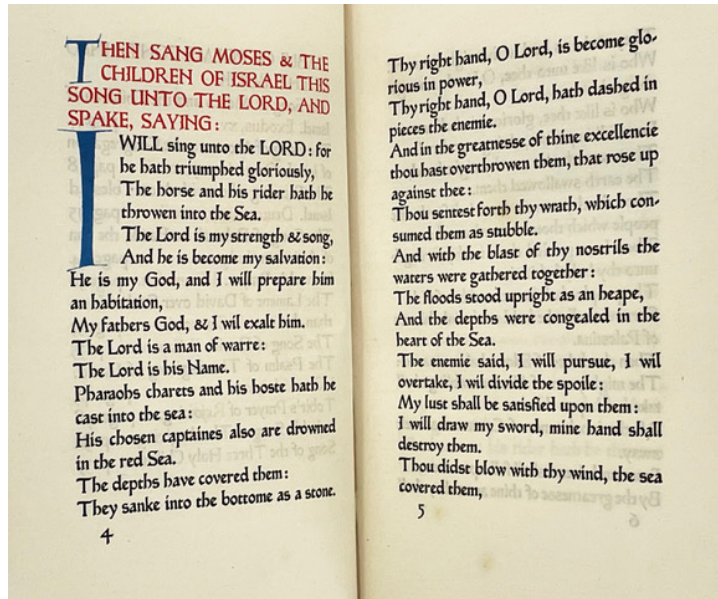 THEN SANG MOSES & THE
CHILDREN OF ISRAEL THIS
SONG UNTO THE LORD, AND
SPAKE, SAYING:
I WILL sing unto the LORD: for
he hath triumphed gloriously,
The horse and his rider hath he
throwen into the Sea.
The Lord is my strength & song,
And he is become my salvation:
He is my God, and I will prepare him
an habitation,
My fathers God, & I wil exalt him.
The Lord is a man of warre:
The Lord is his Name.
Pharaohs charets and his hoste hath he
cast into the sea:
His chosen captaines also are drowned
in the red Sea.
The depths have covered them:
They sanke into the bottome as a stone.
4
Thy right hand, O Lord, is become glo-
rious in power,
Thy right hand, O Lord, hath dashed in
pieces the enemie.
And in the greatnesse of thine excellencie
thou hast overthrown them, that rose up
against thee:
Thou sentest forth thy wrath, which con-
sumed them as stubble.
And with the blast of thy nostrils the
waters were gathered together:
The floods stood upright as an heape,
And the depths were congealed in the
heart of the Sea.
The enemie said, I will pursue, I wil
overtake, I wil divide the spoile:
My lust shall be satisfied upon them:
I will draw my sword, mine hand shall
destroy them.
Thou didst blow with thy wind, the sea
covered them,
5